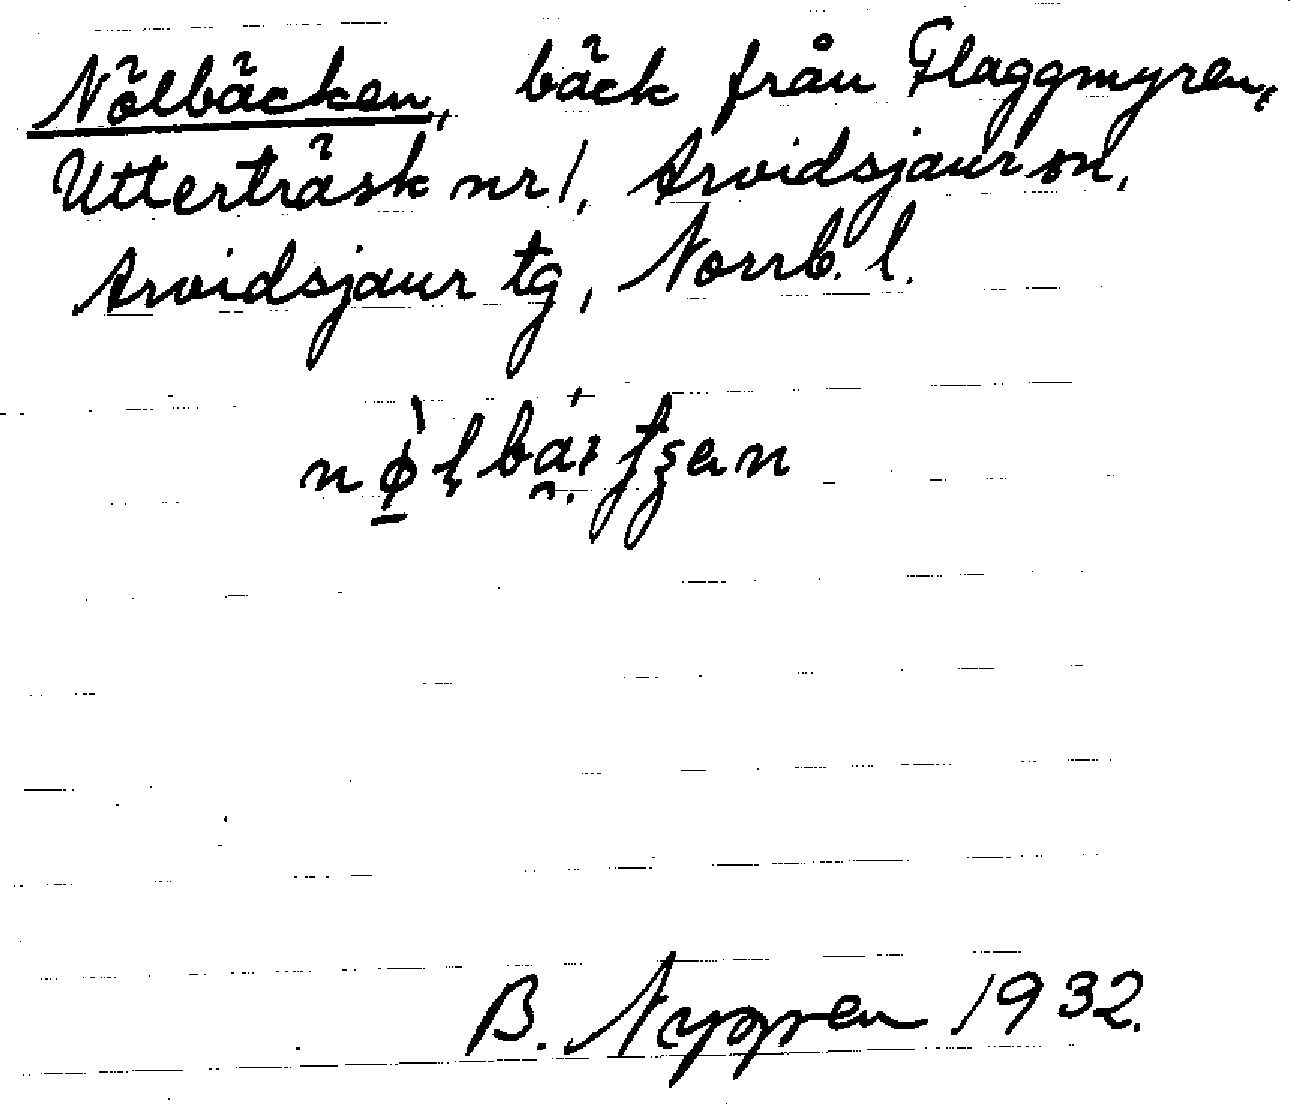 Nölbäcken, bäck från Flaggmyren,
Utterträsk nr 1, Arvidsjaur sn,
Arvidsjaur tg, Norrb. l.
B. Nygren 1932.